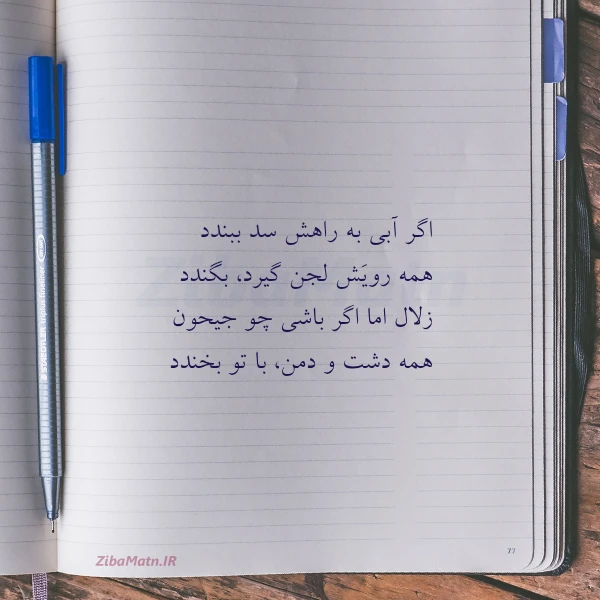 اگر آبی به راهش سد ببندد
همه رویَش لجن گیرد، بگندد
زلال اما اگر باشی چو جیحون
همه دشت و دمن، با تو بخندد
77
ZibaMatn.IR